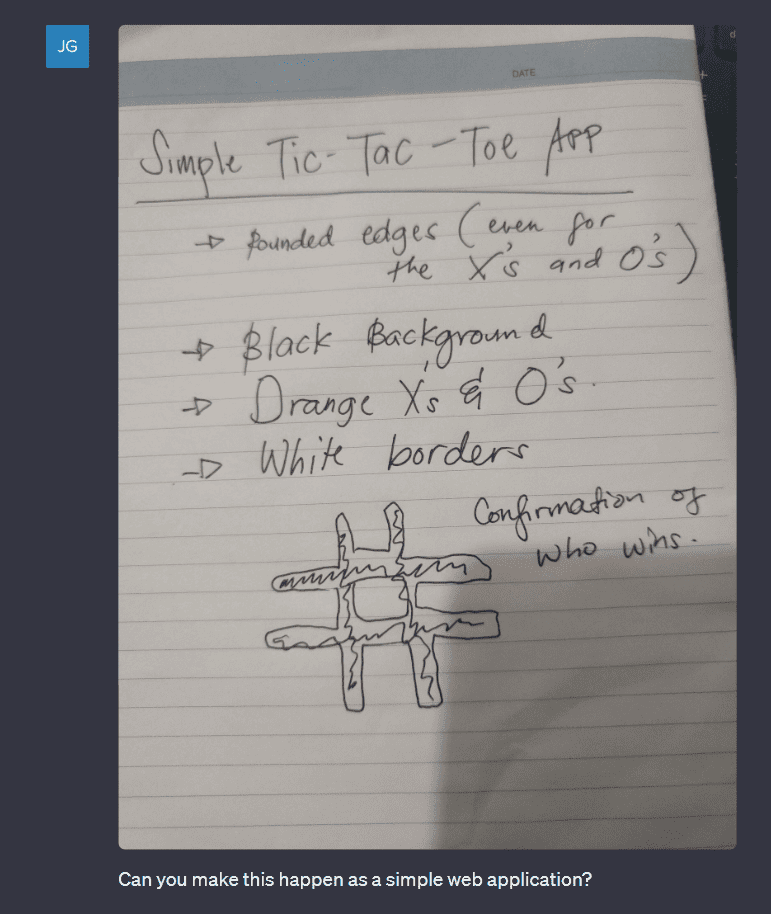 JG
DATE
Simple Tic-Tac-Toe App
→ Rounded edges (even for
the X's and O's)
→ Black Background
→ Orange X's & O's.
→ White borders
Confirmation of
who wins.
Can you make this happen as a simple web application?